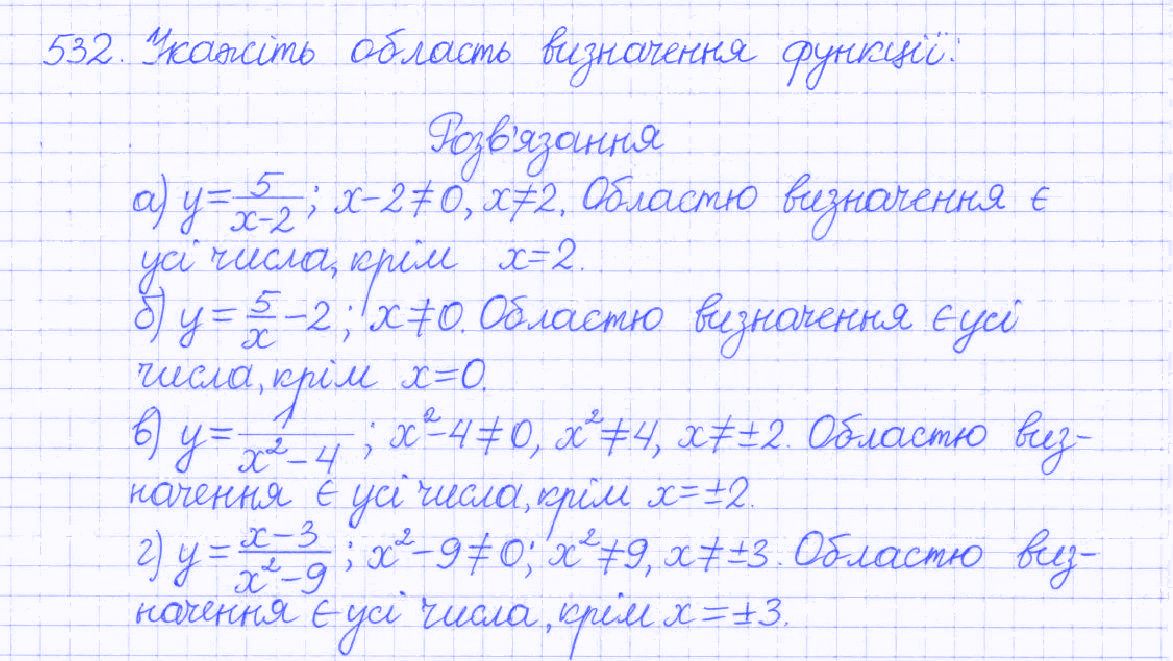 532. Укажіть область визначення функції:
Розв'язання
а) y = 5/(x-2); x-2≠0, x≠2. Областю визначення є
усі числа, крім x=2.
б) y = 5/x - 2; x≠0. Областю визначення є усі
числа, крім x=0.
в) y = 1/(x²-4); x²-4≠0, x²≠4, x≠±2. Областю виз-
начення є усі числа, крім x=±2.
г) y = (x-3)/(x²-9); x²-9≠0; x²≠9, x≠±3. Областю виз-
начення є усі числа, крім x=±3.